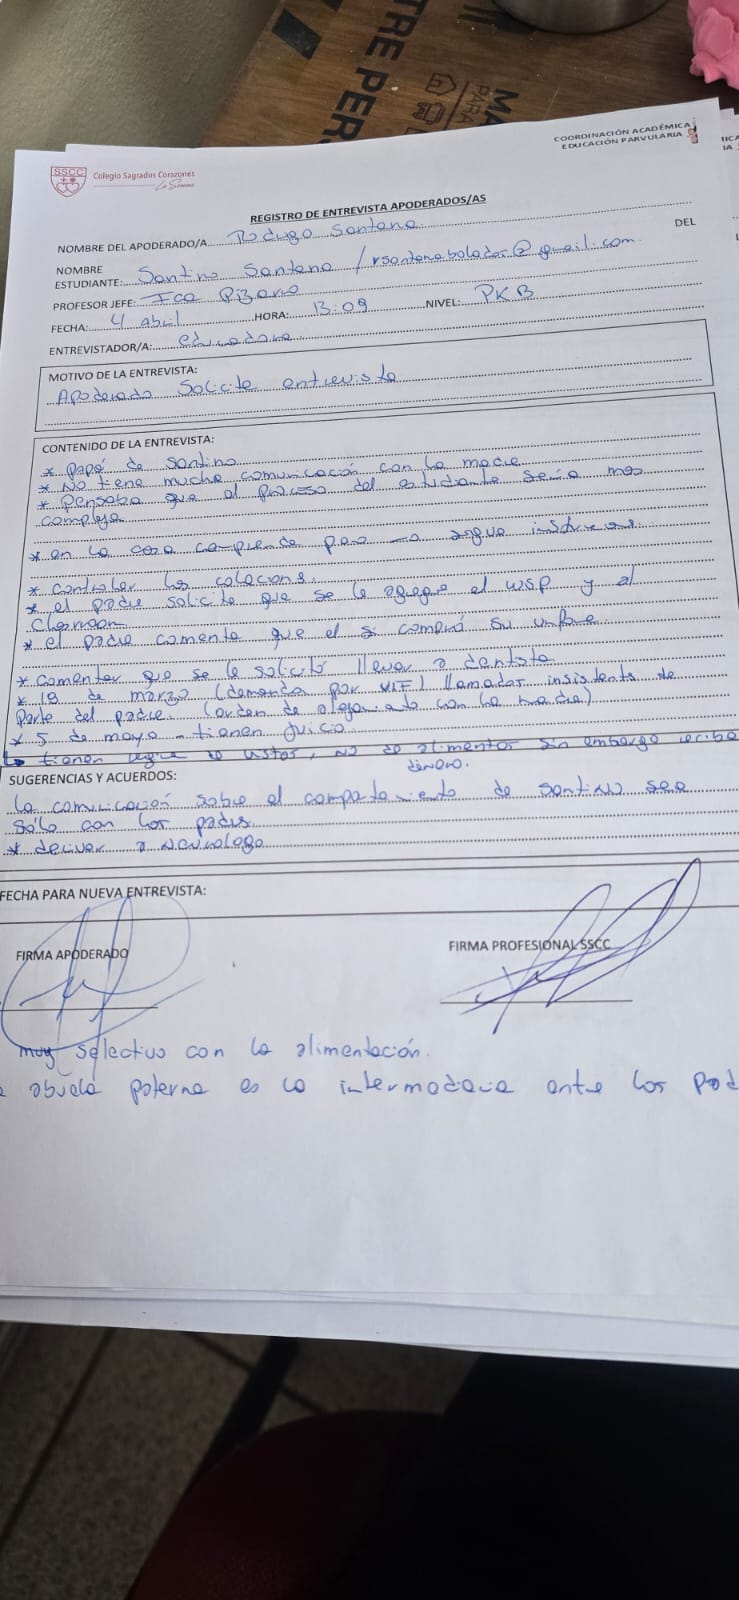 TRE PER
MA
PARA
COORDINACIÓN ACADÉMICA
EDUCACIÓN PARVULARIA
SSCC
Colegio Sagrados Corazones
La Serena
REGISTRO DE ENTREVISTA APODERADOS/AS
NOMBRE DEL APODERADO/A Rodrigo Santana
NOMBRE DEL
ESTUDIANTE: Santino Santana / rsantanabolados@gmail.com
PROFESOR JEFE: Fca Pizarro
FECHA: 4 Abril HORA: 13:09 NIVEL: PKB
ENTREVISTADOR/A: educadora
MOTIVO DE LA ENTREVISTA:
Apoderado Solicita entrevista
CONTENIDO DE LA ENTREVISTA:
* Papá de Santino
* No tiene mucha comunicación con la madre
* Pensaba que el proceso del estudiante sería más
complejo
* en la casa comprende pero sigue
* controlar las colaciones.
* el padre solicita que se le agregue al wsp y al
* el padre comenta que el si compró su uniforme
* comentar que se le solicitó llevar a dentista
* 19 de marzo (demanda por VIF) llamadas insistente de
parte del padre. (orden de alejamiento con la madre)
* 5 de mayo - tienen juicio
tienen de visitas, no de alimentos sin embargo recibe
dinero.
SUGERENCIAS Y ACUERDOS:
La comunicación sobre el comportamiento de Santino sea
sólo con los padres.
* derivar a neurólogo
FECHA PARA NUEVA ENTREVISTA:
FIRMA APODERADO
FIRMA PROFESIONAL SSCC
muy selectivo con la alimentación.
abuela paterna es la intermediaria entre los